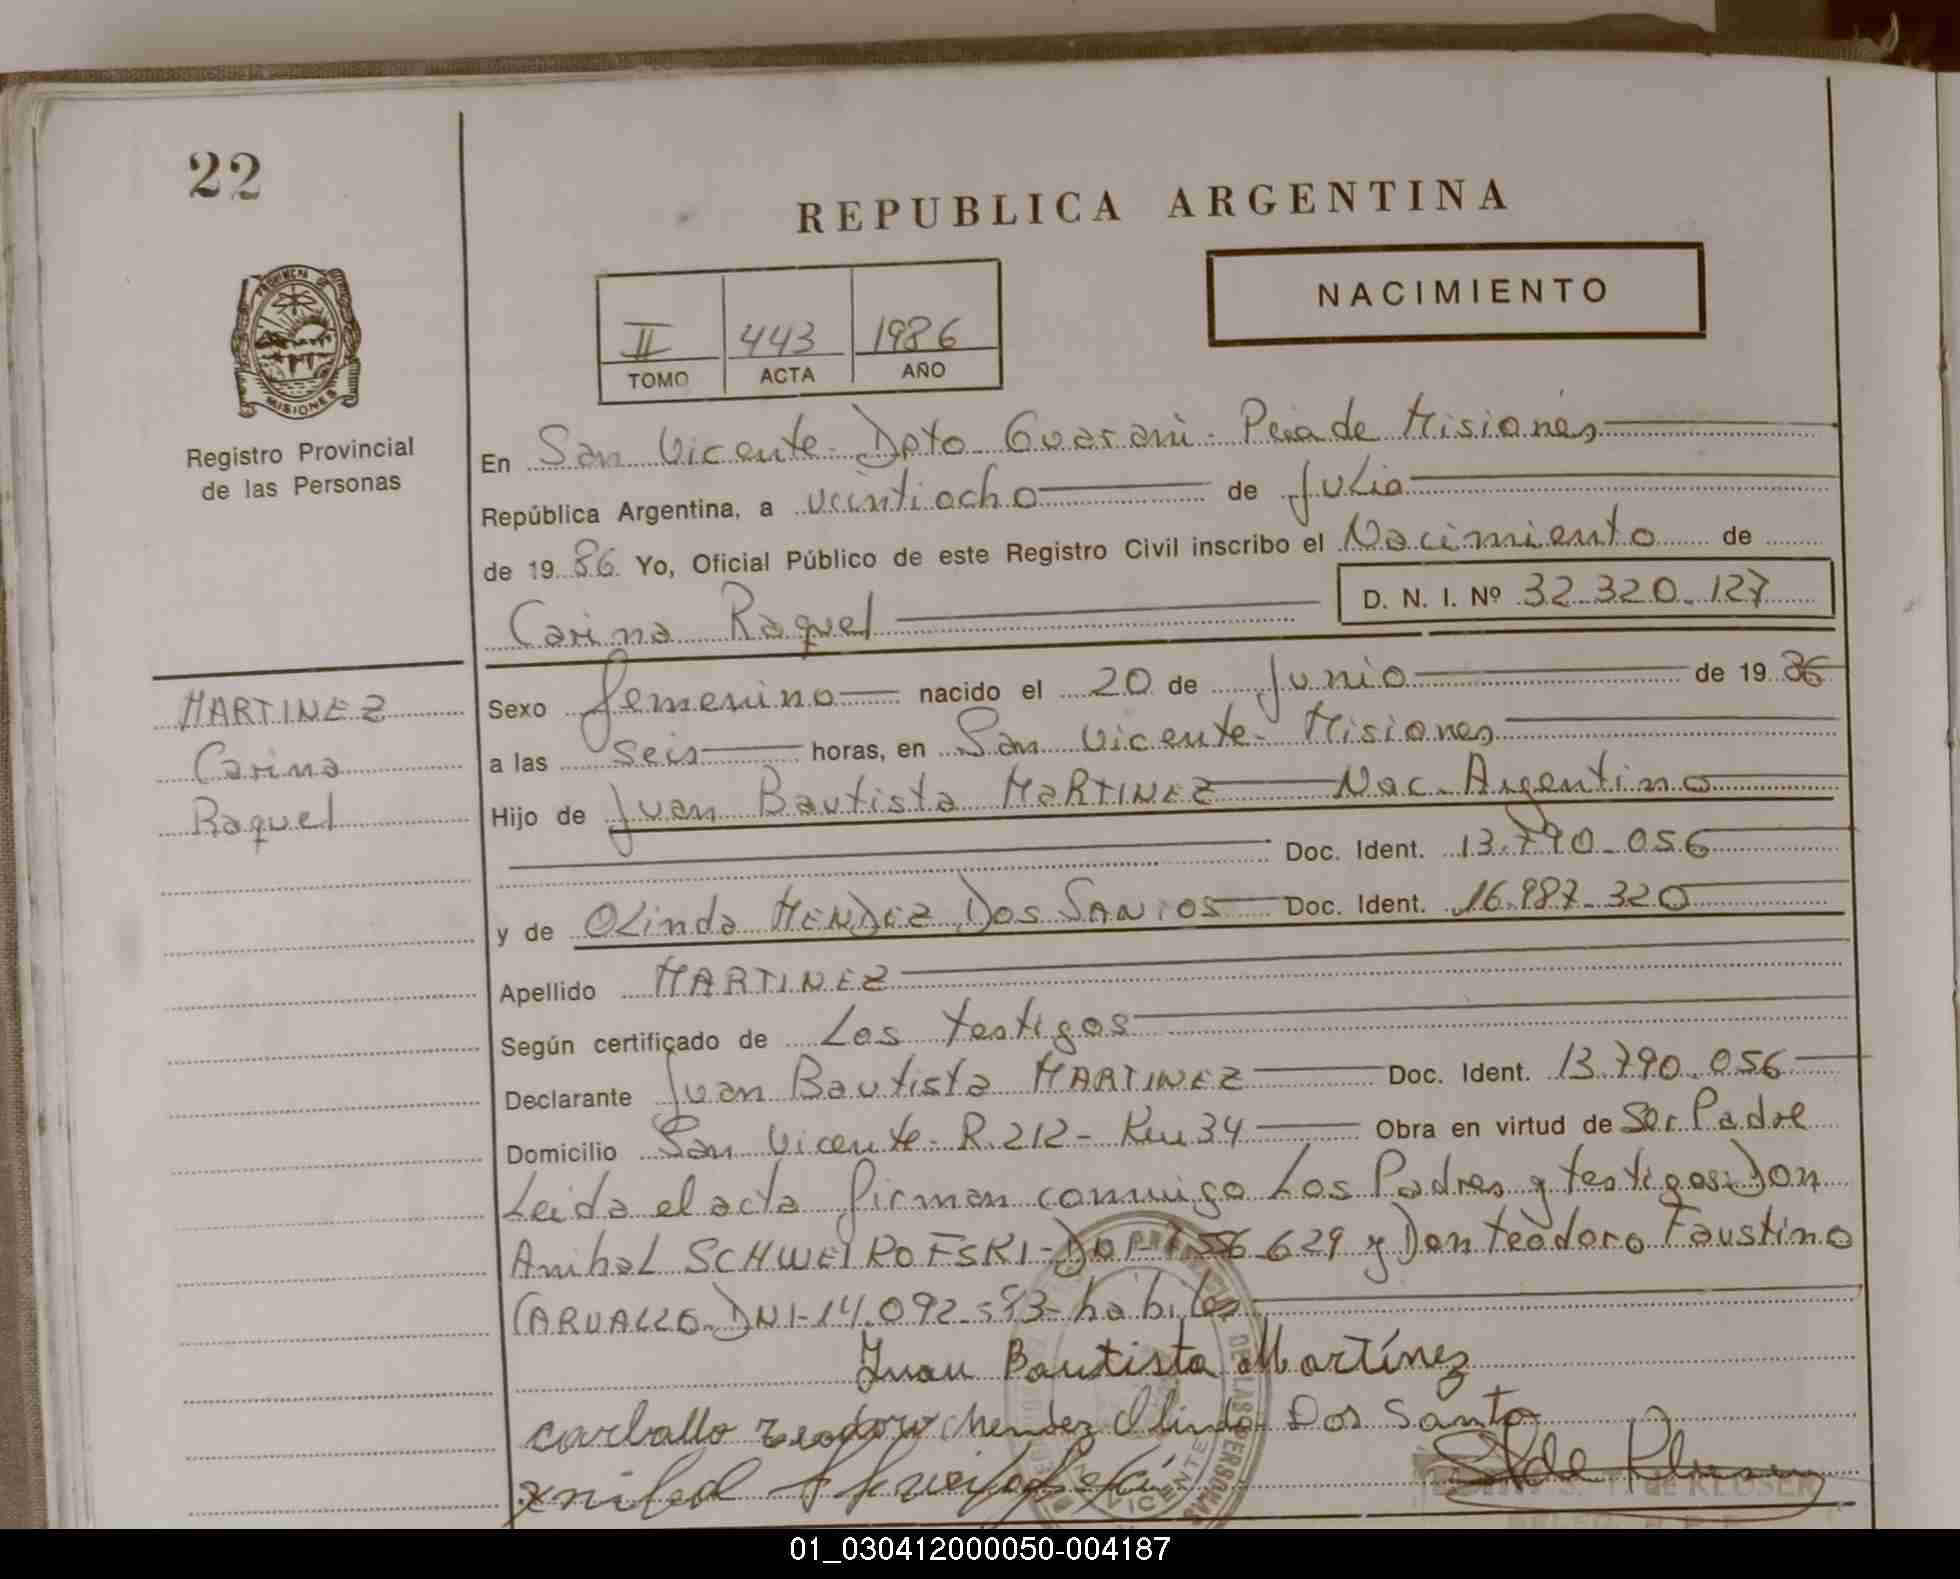 22
REPUBLICA ARGENTINA
NACIMIENTO
II 443 1986
TOMO ACTA AÑO
PROVINCIA DE
MISIONES
Registro Provincial
de las Personas
En San Vicente - Dpto Guarani - Pcia de Misiones
República Argentina, a veintiocho de Julio
de 1986 Yo, Oficial Público de este Registro Civil inscribo el Nacimiento de
Carina Raquel D. N. I. Nº 32.320.127
MARTINEZ
Carina
Raquel
Sexo femenino nacido el 20 de Junio de 1986
a las seis horas, en San Vicente - Misiones
Hijo de Juan Bautista MARTINEZ Nac. Argentino
Doc. Ident. 13.790.056
y de OLinda MENDEZ DOS SANTOS Doc. Ident. 16.987.320
Apellido MARTINEZ
Según certificado de Los testigos
Declarante Juan Bautista MARTINEZ Doc. Ident. 13.790.056
Domicilio San Vicente - R. 212 - Km 34 Obra en virtud de Ser Padre
Leida el acta firman conmigo Los Padres y testigos: Don
Anibal SCHWEIROFSKI - 629 y Don teodoro Faustino
CARVALLO. DNI - 14.092 - habiles
Juan Bautista Martínez
carballo teodoro Mendez Olinda Dos Santo
S. T. de KLOSER
DE LAS PERSONAS
VICENTE
01_030412000050-004187